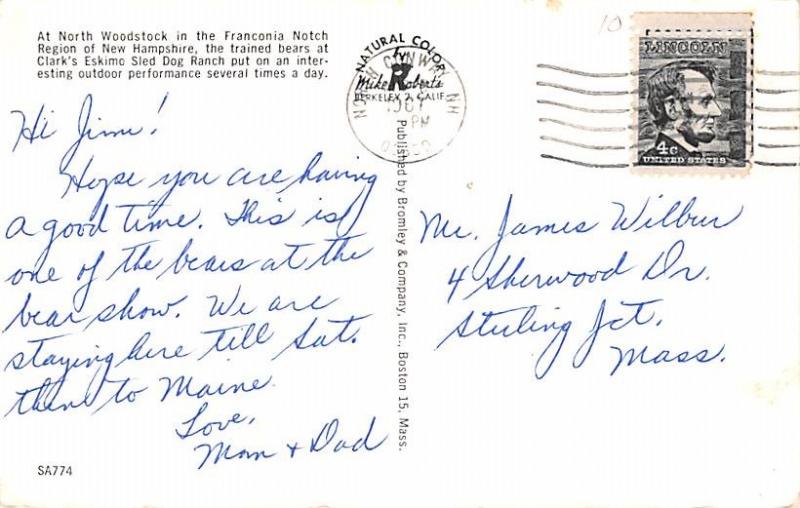 At North Woodstock in the Franconia Notch
Region of New Hampshire, the trained bears at
Clark's Eskimo Sled Dog Ranch put on an inter-
esting outdoor performance several times a day.
Hi Jim!
Hope you are having
a good time. This is
one of the bears at the
bear show. We are
staying here till Sat.
then to Maine.
Love,
Mom + Dad
SA774
NATURAL COLOR
by
R
Mike Roberts
BERKELEY 2, CALIF.
NORTH CONWAY, NH
1967
PM
Published by Bromley & Company, Inc., Boston 15, Mass.
10
LINCOLN
4c
UNITED STATES
Mr. James Wilbur
4 Sherwood Dr.
Sterling Jct.
Mass.